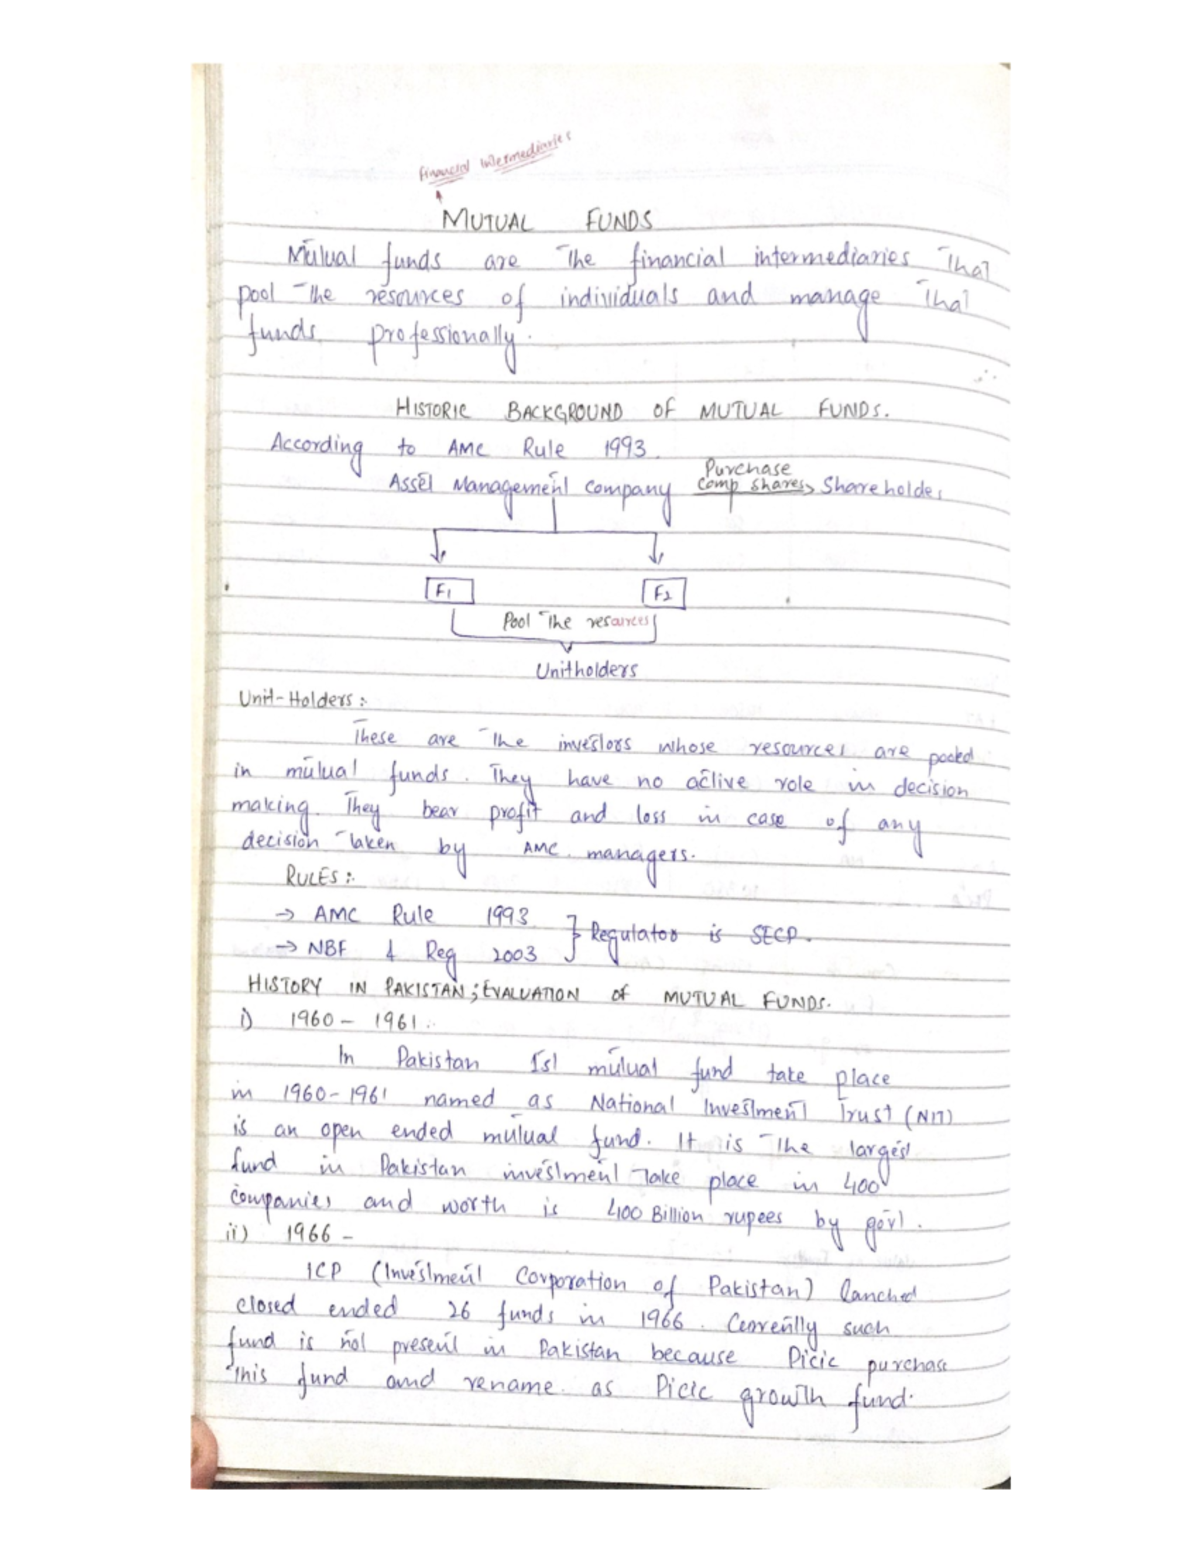 Financial Intermediaries
MUTUAL FUNDS
Mutual funds are the financial intermediaries that
pool the resources of individuals and manage that
funds professionally.
HISTORIC BACKGROUND OF MUTUAL FUNDS.
According to AMC Rule 1993.
Purchase
Asset Management Company comp shares Shareholder
F1 F2
Pool the resources
Unitholders
Unit-Holders:-
These are the investors whose resources are pooled
in mutual funds. They have no active role in decision
making. They bear profit and loss in case of any
decision taken by AMC managers.
RULES:-
→ AMC Rule 1993
Regulator is SECP.
→ NBF & Reg 2003
HISTORY IN PAKISTAN; EVALUATION of MUTUAL FUNDS.
i) 1960 - 1961:
In Pakistan Ist mutual fund take place
in 1960-1961 named as National Investment Trust (NIT)
is an open ended mutual fund. It is the largest
fund in Pakistan investment take place in 400
companies and worth is 400 Billion rupees by govt.
ii) 1966 -
ICP (Investment Corporation of Pakistan) lanched
closed ended 26 funds in 1966. Currently such
fund is not present in Pakistan because Picic purchase
this fund and rename as Picic growth fund.